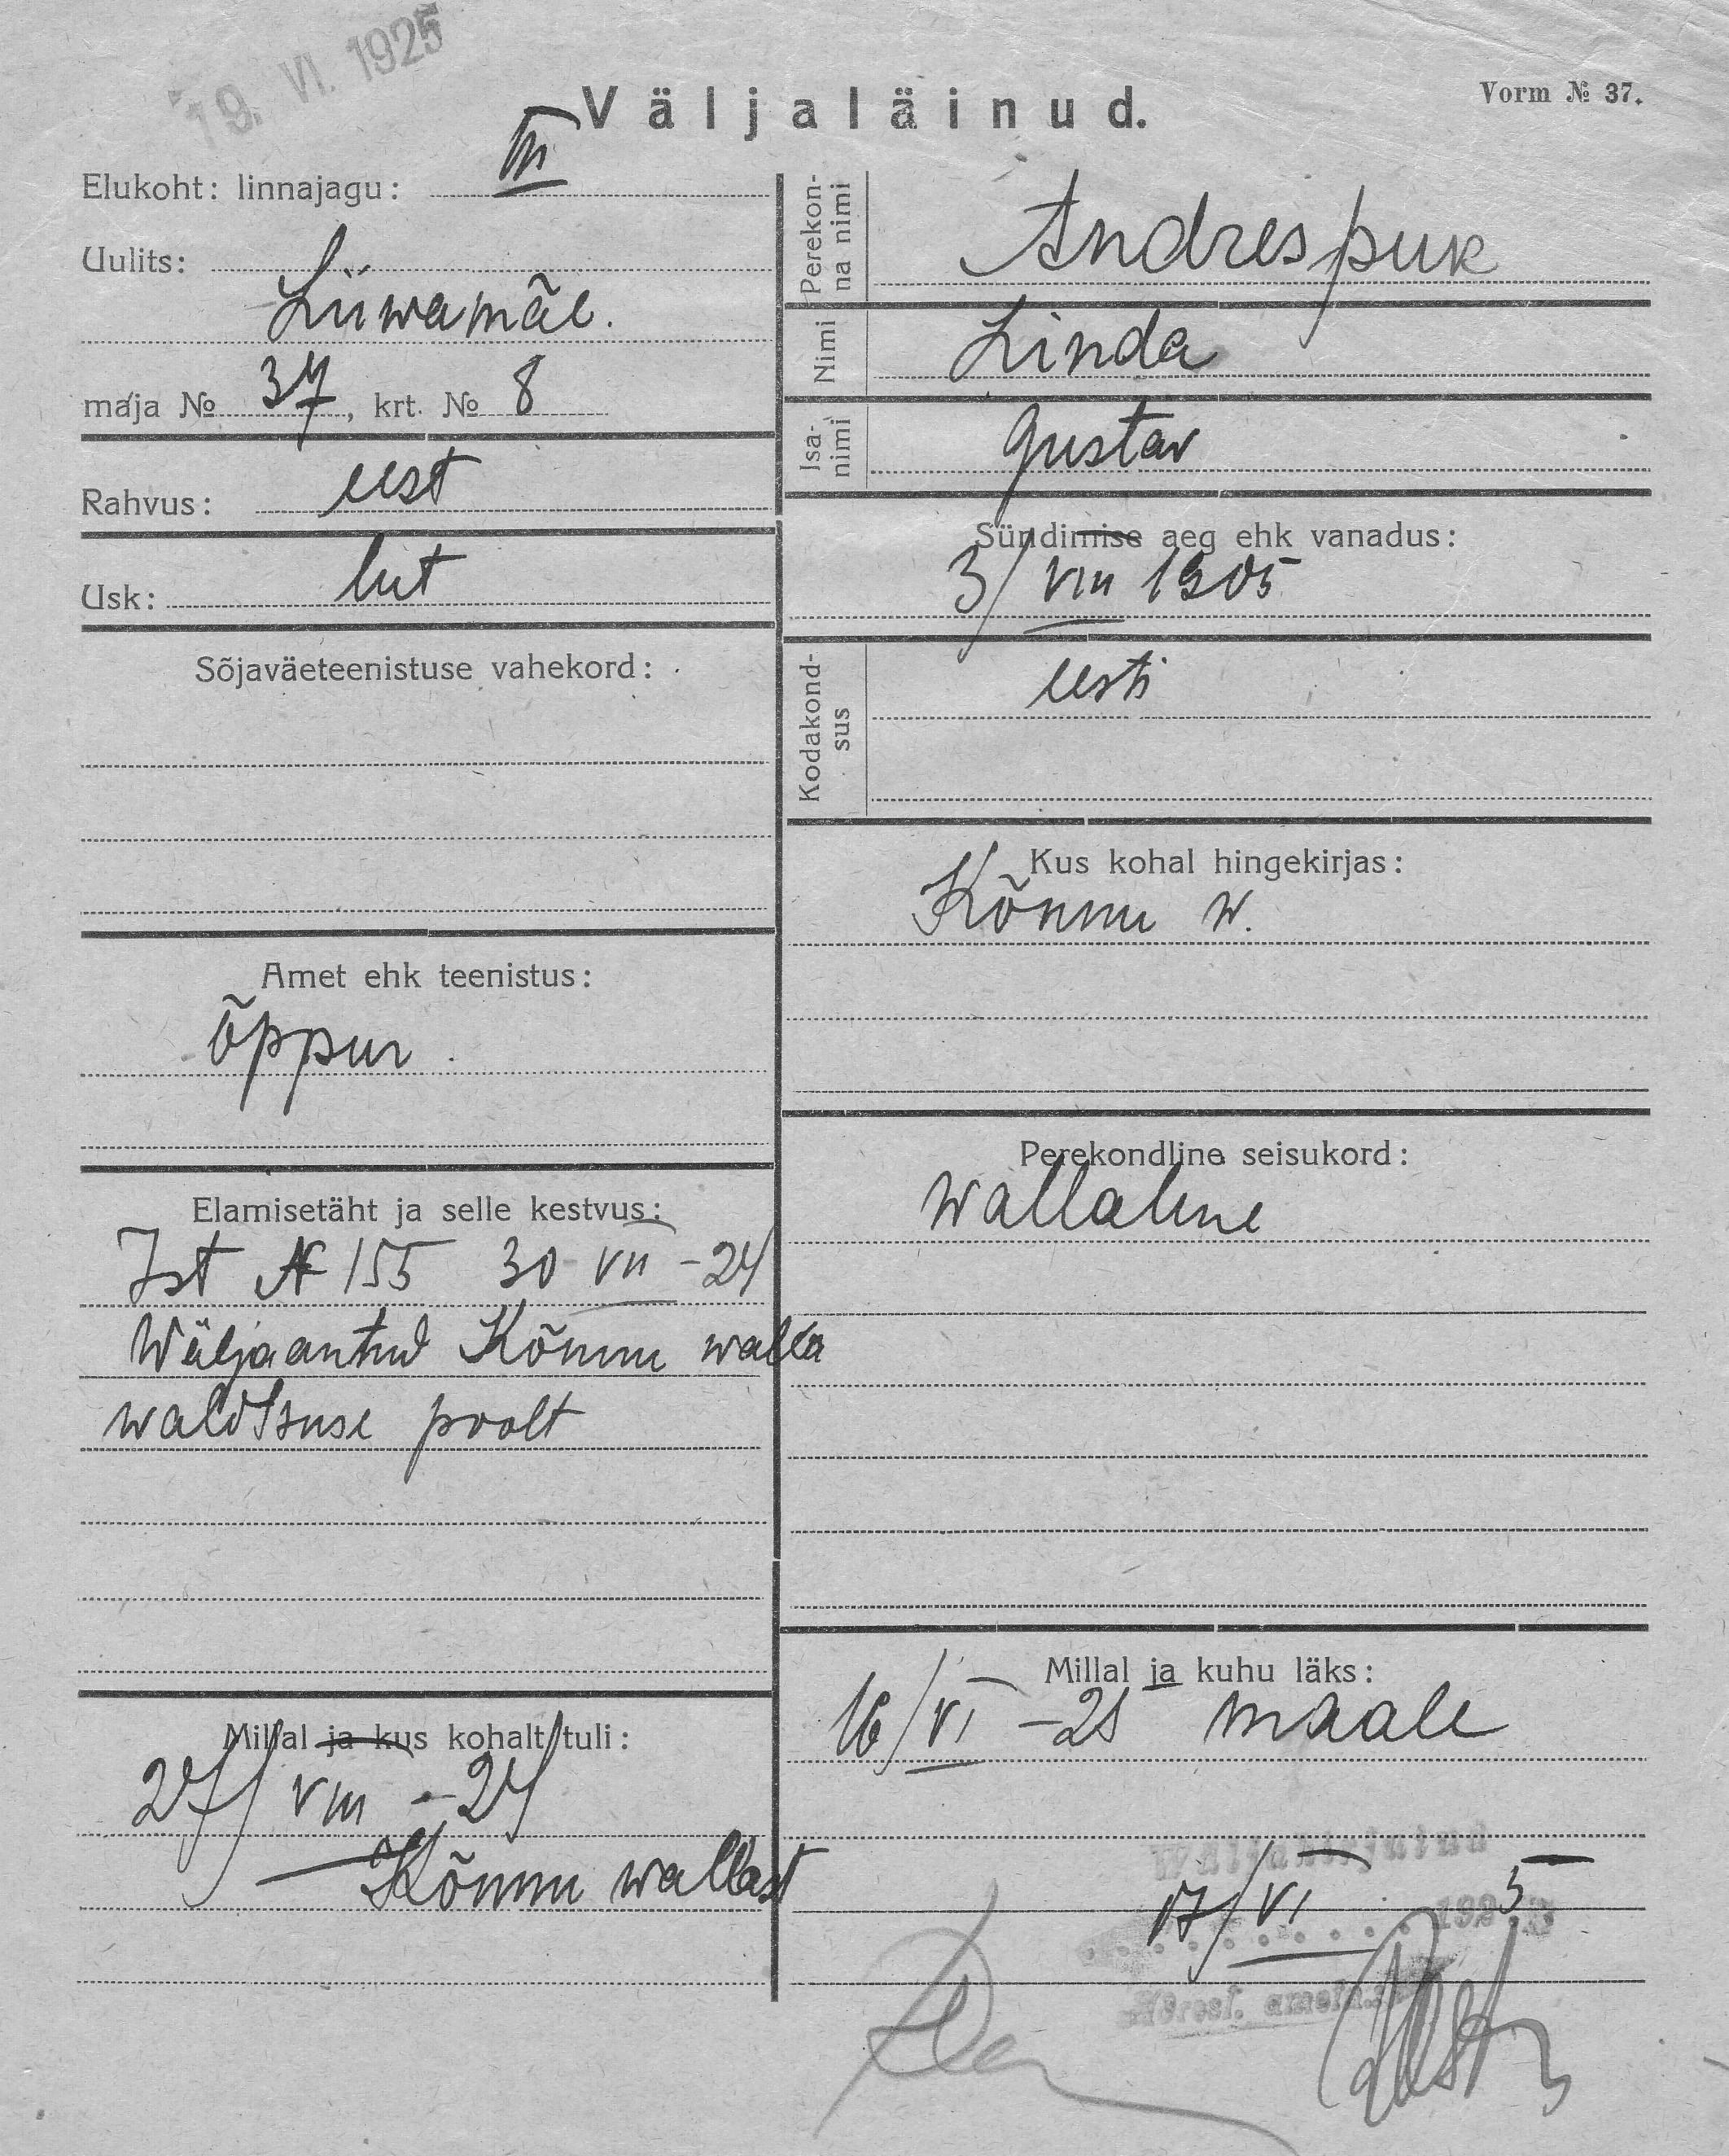 19. VI. 1925
Väljaläinud.
Vorm № 37.
Elukoht: linnajagu: III
Uulits:
Liiwamäe.
maja № 37, krt. № 8
Rahvus: eest
Usk: lut
Sõjaväeteenistuse vahekord:
Amet ehk teenistus:
õppur.
Elamisetäht ja selle kestvus:
Ist № 155 30 VII -24
Wäljaantud Kõnnu walla
waldtsuse poolt
Millal ja kus kohalt tuli:
27/ VIII - 24
Kõnnu wallast
Perekonna nimi
Andrespuk
Nimi
Linda
Isanimi
Gustav
Sündimise aeg ehk vanadus:
3/ VIII 1905
Kodakondsus
eesti
Kus kohal hingekirjas:
Kõnnu w.
Perekondline seisukord:
wallaline
Millal ja kuhu läks:
16/VI -25 maale
Wäljakirjutud
17/VI 192 5